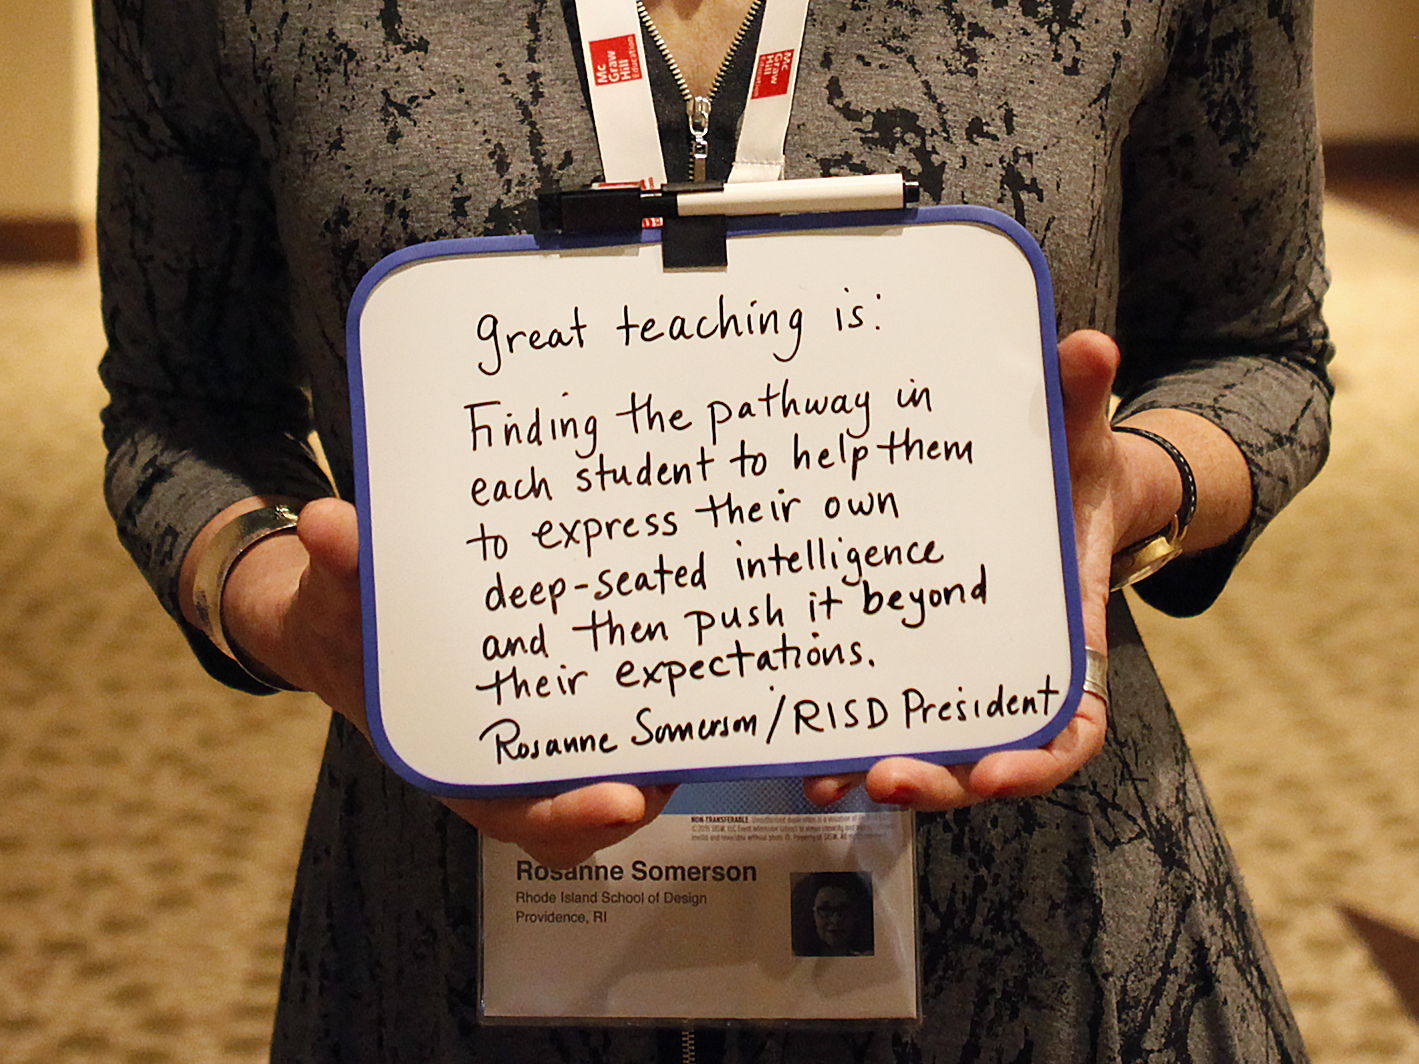 Mc
Graw
Hill
Education
Mc
Graw
Hill
Education
great teaching is:
Finding the pathway in
each student to help them
to express their own
deep-seated intelligence
and then push it beyond
their expectations.
Rosanne Somerson/RISD President
NON-TRANSFERABLE.
Rosanne Somerson
Rhode Island School of Design
Providence, RI